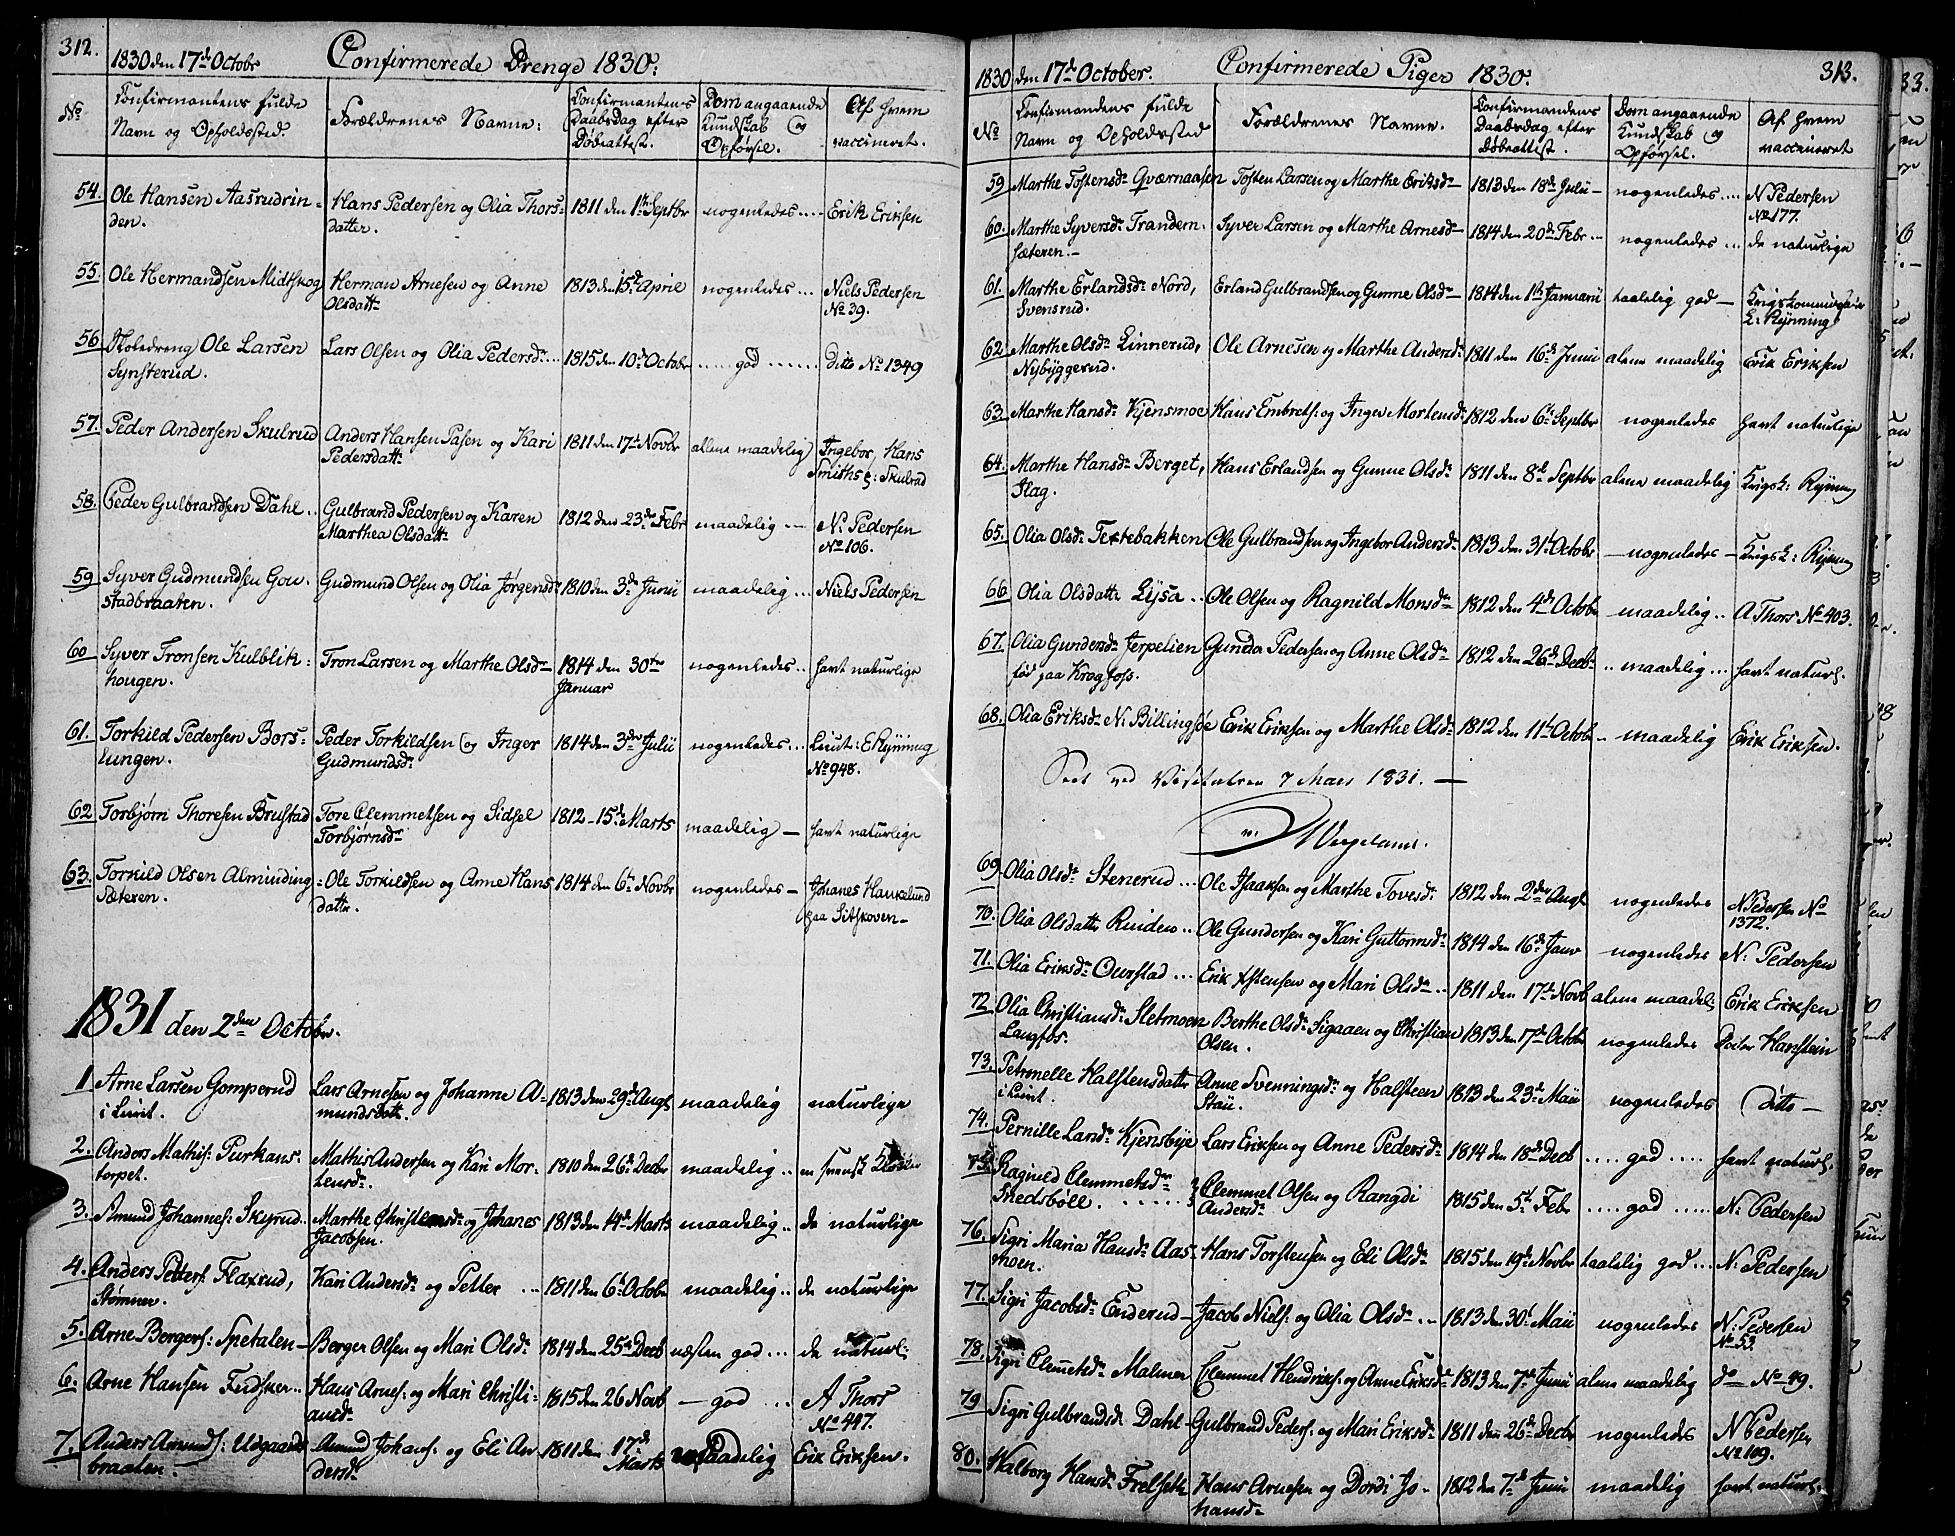 312.
1830 den 17de Octobr Confirmerede Drenge 1830.
No
Confirmantens fulde Navn og Opholdssted.
Forældrenes Navne:
Confirmantens Daabsdag efter Døbeattest.
Dom angaaende Kundskab og Opførsel.
Af hvem vaccineret.
54. Ole Hansen Aasrudrin= Hans Pedersen og Olia Thors= 1811 den 1te Septbr nogenledes .... Erik Eriksen
den. datter.
55. Ole Hermandsen Midtskog Herman Arnesen og Anne 1813 den 15de April nogenledes ... Niels Pedersen
Olsdattr No 39.
56 Skoledreng Ole Larsen Lars Olsen og Olia Pedersdr ... 1815 den 10de Octobr ..... god ...... Ditto No 1349
Synsterud.
57. Peder Andersen Skulrud Anders Hansen Pasen og Kari 1811 den 17de Novbr allene maadelig Ingebor, Hans
Pedersdattr Smiths e: Skulrud
58. Peder Gulbrandsen Dahl .. Gulbrand Pedersen og Karen 1812 den 23de Febr maadelig --- N: Pedersen
Marthea Olsdattr No 106.
59 Syver Gudmundsen Gou= Gudmund Olsen og Olia Jørgensdr 1810 den 3de Junii maadelig ... Niels Pedersen
stadbraaten.
60 Syver Tronsen Kulblik= Tron Larsen og Marthe Olsdr 1814 den 30te nogenledes .. havt naturlige
hougen. Januar
61. Torkild Pedersen Bors= Peder Torkildsen og Inger 1814 den 3de Julii nogenledes ... Leut: E Rynning
lungen. Gudmundsdr No 948.
62 Torbjørn Thoresen Brustad Tore Clemmetsen og Sidsel 1812 - 15de Marts maadelig — havt naturlige
Torbjørnsdr
63. Torkild Olsen Alminding= Ole Torkildsen og Anne Hans 1814 den 6te Novbr nogenledes — Johanes Haukelund
Sæteren. dattr. paa Sitskoven —
1831 den 2den Octobr.
1 Arne Larsen Gomperud Lars Arnesen og Johanne A= 1813 den 29de Augt maadelig naturlige
i Leiret. mundsdattr.
2. Anders Mathis: Purkans= Mathis Andersen og Kari Mor= 1810 den 26de Decbr maadelig .. en svensk
torpet. tensdr.
3. Amund Johannes: Skyrud .. Marthe Christensdr og Johanes 1813 den 14de Marts maadelig .. de naturlige
Jacobsen.
4. Anders Petters: Flaxrud, Kari Andersdr og Petter ... 1811 den 6te Octobr maadelig .. de naturlige
Strømner.
5. Arne Bergers: Spetalen — Berger Olsen og Mari Olsdr 1814 den 25de Decb næsten god ... de naturl:
6. Arne Hansen Fudsker .. Hans Arnes: og Mari Christi= 1815 den 26 Novb — god ... A Thors
ansdr No 447.
7. Anders Amunds: Udgaards Amund Johans: og Eli An 1811 den 17de maadelig Erik Eriksen.
braaten. dersdr Marts
1830 den 17de October. Confirmerede Piger 1830. 313.
No
Confirmandens fulde Navn og Opholdssted
Forældrenes Navne.
Confirmandens Daabsdag efter Døbeattest.
Dom angaaende Kundskab og Opførsel.
Af hvem vaccineret
59 Marthe Tostensdr Qværnaasen Tosten Larsen og Marthe Eriksdr 1813 den 18de Julii — nogenledes .... N Pedersen
No 177.
60. Marthe Syversdr Trandem. Syver Larsen og Marthe Arnesdr 1814 den 20de Febr ... nogenledes ... de naturlige
sæteren. —
61. Marthe Erlandsdr Nord, Erland Gulbrandsen og Gunne Olsdr 1814 den 1te Januarii taalelig god — Krigskommissair
Svensrud. E: Rynning
62 Marthe Olsdr Linnerud, Ole Arnesen og Marthe Andersdr 1811 den 16de Junii alene maadelig Erik Eriksen
Nybyggerud.
63. Marthe Hansdr Kjensmoe Hans Embrets: og Inger Mortensdr 1812 den 6te Septbr nogenledes havt naturlige
64. Marthe Hansdr Berget, Hans Erlandsen og Gunne Olsdr 1811 den 8de Septbr alene maadelig Krigsk: Rynning
Flag.
65. Olia Olsdr Tertebakken Ole Gulbrandsen og Ingebor Andersdr 1813 den 31te Octobr — nogenledes — Krigsk: Rynning
66 Olia Olsdattr Lysa .. Ole Olsen og Ragnild Monsdr 1812 den 4de Octobr — maadelig .. A Thors No 403.
67. Olia Gundersdr Jerpelien Gunder Pedersen og Anne Olsdr 1812 den 26de Decbr .. maadelig ... havt naturl.
fød paa Krogfoss.
68. Olia Eriksdr N: Billingsøe Erik Eriksen og Marthe Olsdr 1812 den 11te Octobr — maadelig Erik Eriksen.
Seet ved Visitatsen 7 Mars 1831. —
69 Olia Olsdr Stenerud ... Ole Isaaksen og Marthe Tovesdr 1812 den 2den Augt nogenledes N Pedersen No
1372.
70. Olia Olsdattr Rinden .. Ole Gundersen og Kari Guttormsdr 1814 den 16de Janr nogenledes N: Pedersen
71. Olia Eriksdr Ourstad ... Erik Astensen og Mari Olsdr .. 1811 den 17de Novb alene maadel: Erik Eriksen
72 Olia Christiansdr Sletmoen Berthe Olsdr Sigaaen og Christian 1813 den 17de Octobr nogenledes Doctor Hanstein
Langfos. Olsen.
73. Petronelle Halstensdattr Anne Svenningsdr og Halsteen 1813 den 23de Maii nogenledes Ditto —
i Leiret. Stau.
74. Pernille Larsdr Kjensbye Lars Eriksen og Anne Pedersdr 1814 den 18de Decb .... god ..... havt naturl.
75. Ragnild Clemmetsdr Clemmet Olsen og Rangdi 1815 den 5te Febr .... god ..... N: Pedersen
Snedsböll. ...... Andersdr
76. Sigri Maria Hansdr Aas= Hans Torstensen og Eli Olsdr 1815 den 19de Novbr taalelig god ... N: Pedersen
moen.
77. Sigri Jacobsdr Enderud — Jacob Niels: og Olia Olsdr .. 1813 den 30te Maii nogenledes N: Pedersen
No 53.
78. Sigri Clemetsdr Malmer Clemmet Hendriks: og Anne Eriksdr 1813 den 7de Junii alene maadelig do No 49.
79 Sigri Gulbrandsdr Dahl — Gulbrand Peders: og Mari Eriksdr 1811 den 26de Decbr nogenledes N Pedersen
No 109.
80. Walborg Hansdr Frelseth Hans Arnesen og Dordi Jo- 1812 den 7de Junii maadelig havt naturl:
hansdr